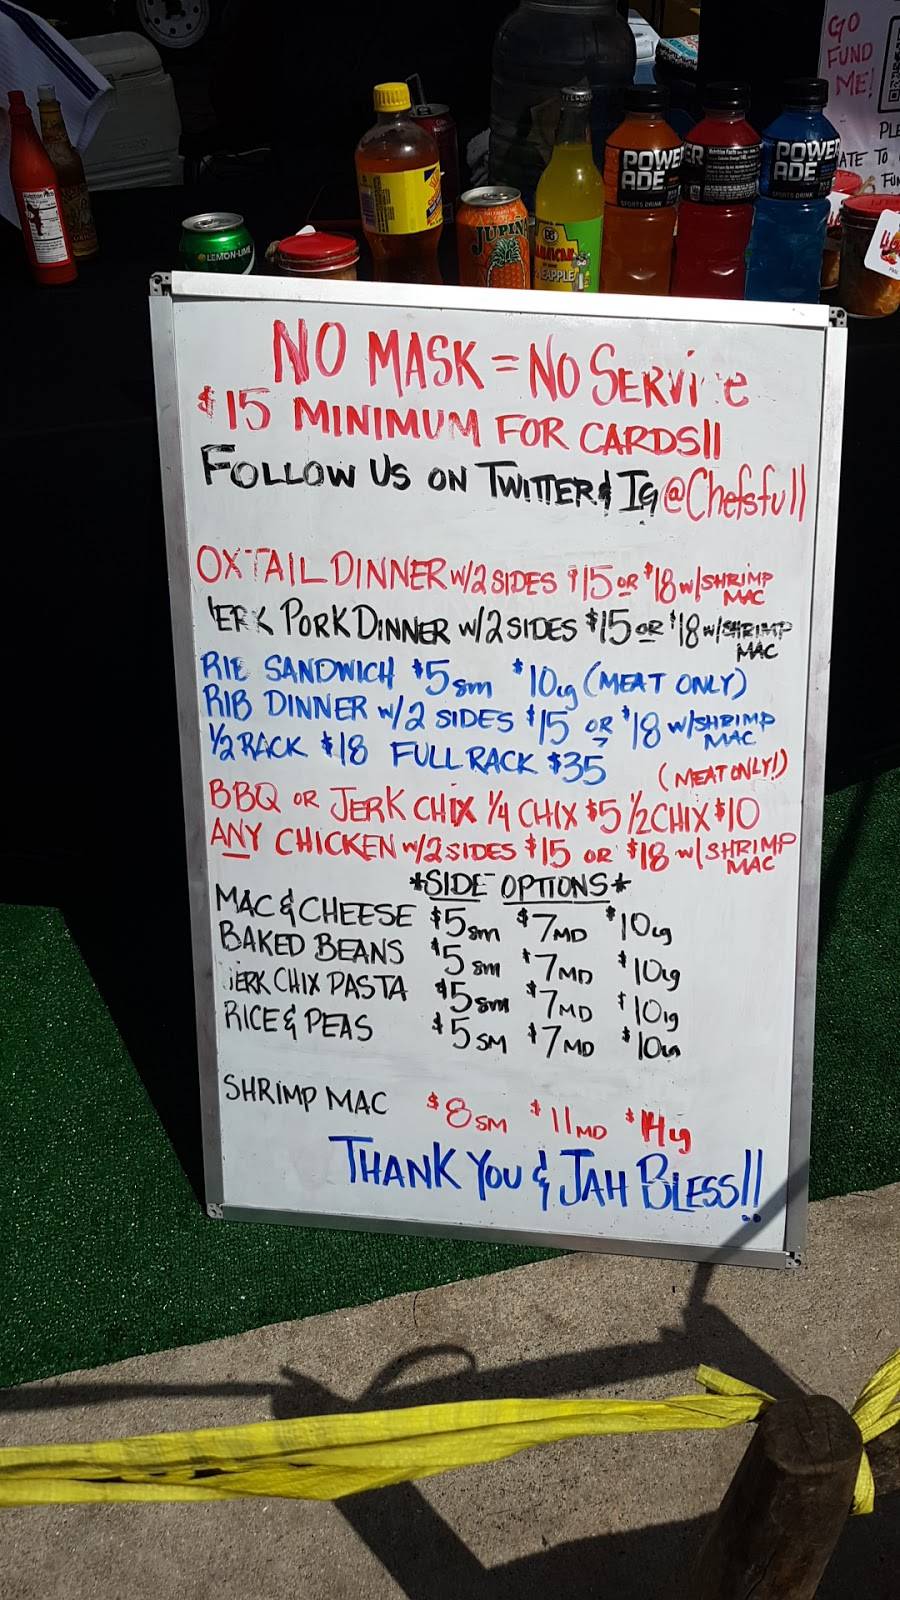 GO
FUND
ME!
PLE
ATE TO
FUN
POWER
ADE
SPORTS DRINK
POWER
ADE
SPORTS DRINK
LEMON-LIME
JUPIÑA
NO MASK = NO SERVI e
$15 MINIMUM FOR CARDS!!
FOLLOW US ON TWITTER & IG @Chefsfull
OXTAIL DINNER w/2 SIDES $15 OR $18 w/SHRIMP MAC
JERK PORK DINNER w/2 SIDES $15 OR $18 w/SHRIMP MAC
RIB SANDWICH $5 sm $10 lg (MEAT ONLY)
RIB DINNER w/2 SIDES $15 OR $18 w/SHRIMP MAC
1/2 RACK $18 FULL RACK $35 (MEAT ONLY!)
BBQ OR JERK CHIX 1/4 CHIX $5 1/2 CHIX $10
ANY CHICKEN w/2 SIDES $15 OR $18 w/SHRIMP MAC
*SIDE OPTIONS*
MAC & CHEESE $5 sm $7 MD $10 lg
BAKED BEANS $5 sm $7 MD $10 lg
JERK CHIX PASTA $5 sm $7 MD $10 lg
RICE & PEAS $5 SM $7 MD $10 lg
SHRIMP MAC $8 SM $11 MD $14 lg
THANK YOU & JAH BLESS!!